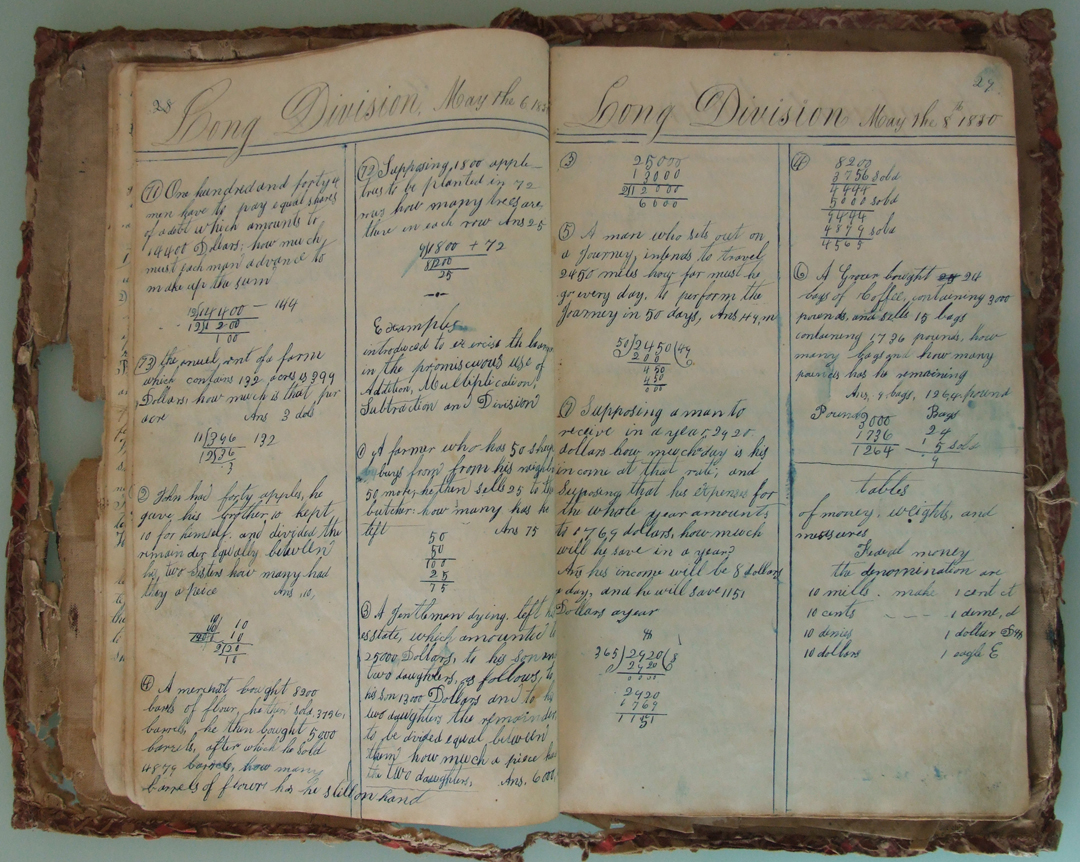 28
Long Division, May the 6, 18
(71) One hundred and forty 4
men have to pay equal shares
of a debt which amounts to
14400 Dollars: how much
must each man advance to
make up the sum
12)14400 - 144
12)1200
100
(73) the anual rent of a farm
which contains 132 acres is 399
Dollars: how much is that per
acre Ans 3 dols
11)396 132
12)36
3
(2) John had forty apples, he
gave his brother 10 kept
10 for himself and divided the
remainder equally between
his two Sisters how many had
they apiece Ans 10,
10 10
10
2)20
10
(4) A merchant bought 8200
barels of flour, he then sold 3756
barrels, he then bought 5000
barrels, after which he sold
4879 barrels, how many
barrels of flower has he still on hand
(72) Supposing 1800 apple
trees to be planted in 72
rows how many trees are
there in each row Ans 25
9)1800 + 72
8)200
25
Examples
introduced to exercise the learner
in the promiscuous use of
Addition, Multiplication,
Subtraction and Division
(1) A farmer who has 50 sheep
buys from from his neighb
50 more, he then sells 25 to the
butcher: how many has he
left Ans 75
50
50
100
25
75
(3) A Gentleman dying, left his
estate, which amounted to
25000 Dollars, to his son and
two daughters, as follows, to
his son 1300 Dollars and to his
two daughters the remainder
to be divided equal between
them how much a piece has
the two daughters, Ans, 6000
29
Long Division May the 8th 1880
(3) 25000
13000
2)12000
6000
(5) A man who sets out on
a Journey, intends to travel
2450 miles how far must he
go every day, to perform the
Journey in 50 days, Ans 49, m
50)2450(49
200
450
450
000
(7) Supposing a man to
receive in a year 2920
dollars how much a day is his
income at that rate, and
Supposing that his Expenses for
the whole year amounts
to 1769 dollars, how much
will he save in a year?
Ans his income will be 8 dollars
a day, and he will save 1151
Dollars a year
8
365)2920(8
2920
0000
2920
1769
1151
(4) 8200
3756 sold
4444
5000 sold
9444
4879 sold
4565
(6) A Grocer bought 24
bags of Coffee, containing 3000
pounds, and sells 15 bags
containing 1736 pounds, how
many bags and how many
pounds has he remaining
Ans, 9 bags, 1264 pound
Pounds Bags
3000 24
1736 15 sold
1264 9
tables
of money, weights, and
measures
Federal money
the denomination are
10 mills make 1 cent ct
10 cents - - 1 dime, d
10 dimes 1 dollar D
10 dollars 1 eagle E